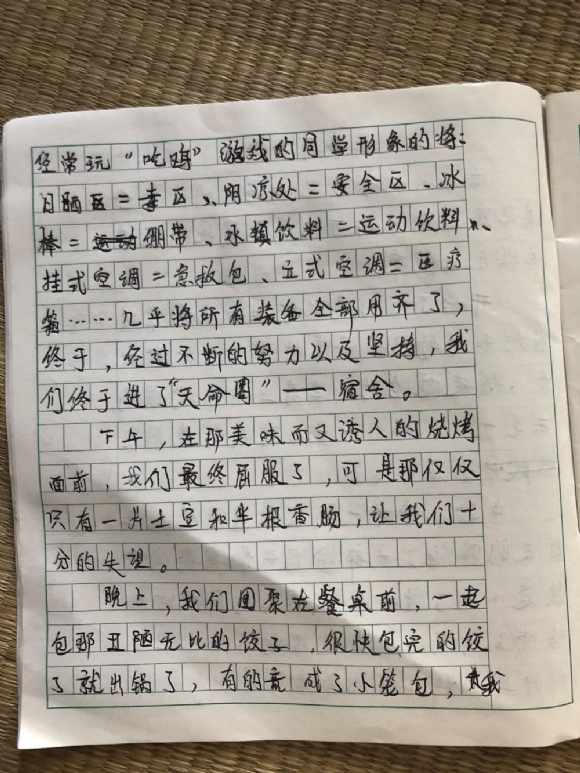 经常玩“吃鸡”游戏的同学形象的将:
日晒区=毒区、阴凉处=安全区、冰
棒=绷带、冰镇饮料=运动饮料、
挂式空调=急救包、立式空调=医疗
箱……几乎将所有装备全部用齐了,
终于,经过不断的努力以及坚持,我
们终于进了“天命圈”——宿舍。
下午,在那美味而又诱人的烧烤
面前,我们最终屈服了,可是那仅仅
只有一片土豆和半根香肠,让我们十
分的失望。
晚上,我们围聚在餐桌前,一起
包那丑陋无比的饺子,很快包完的饺
子就出锅了,有的竟成了小笼包,我